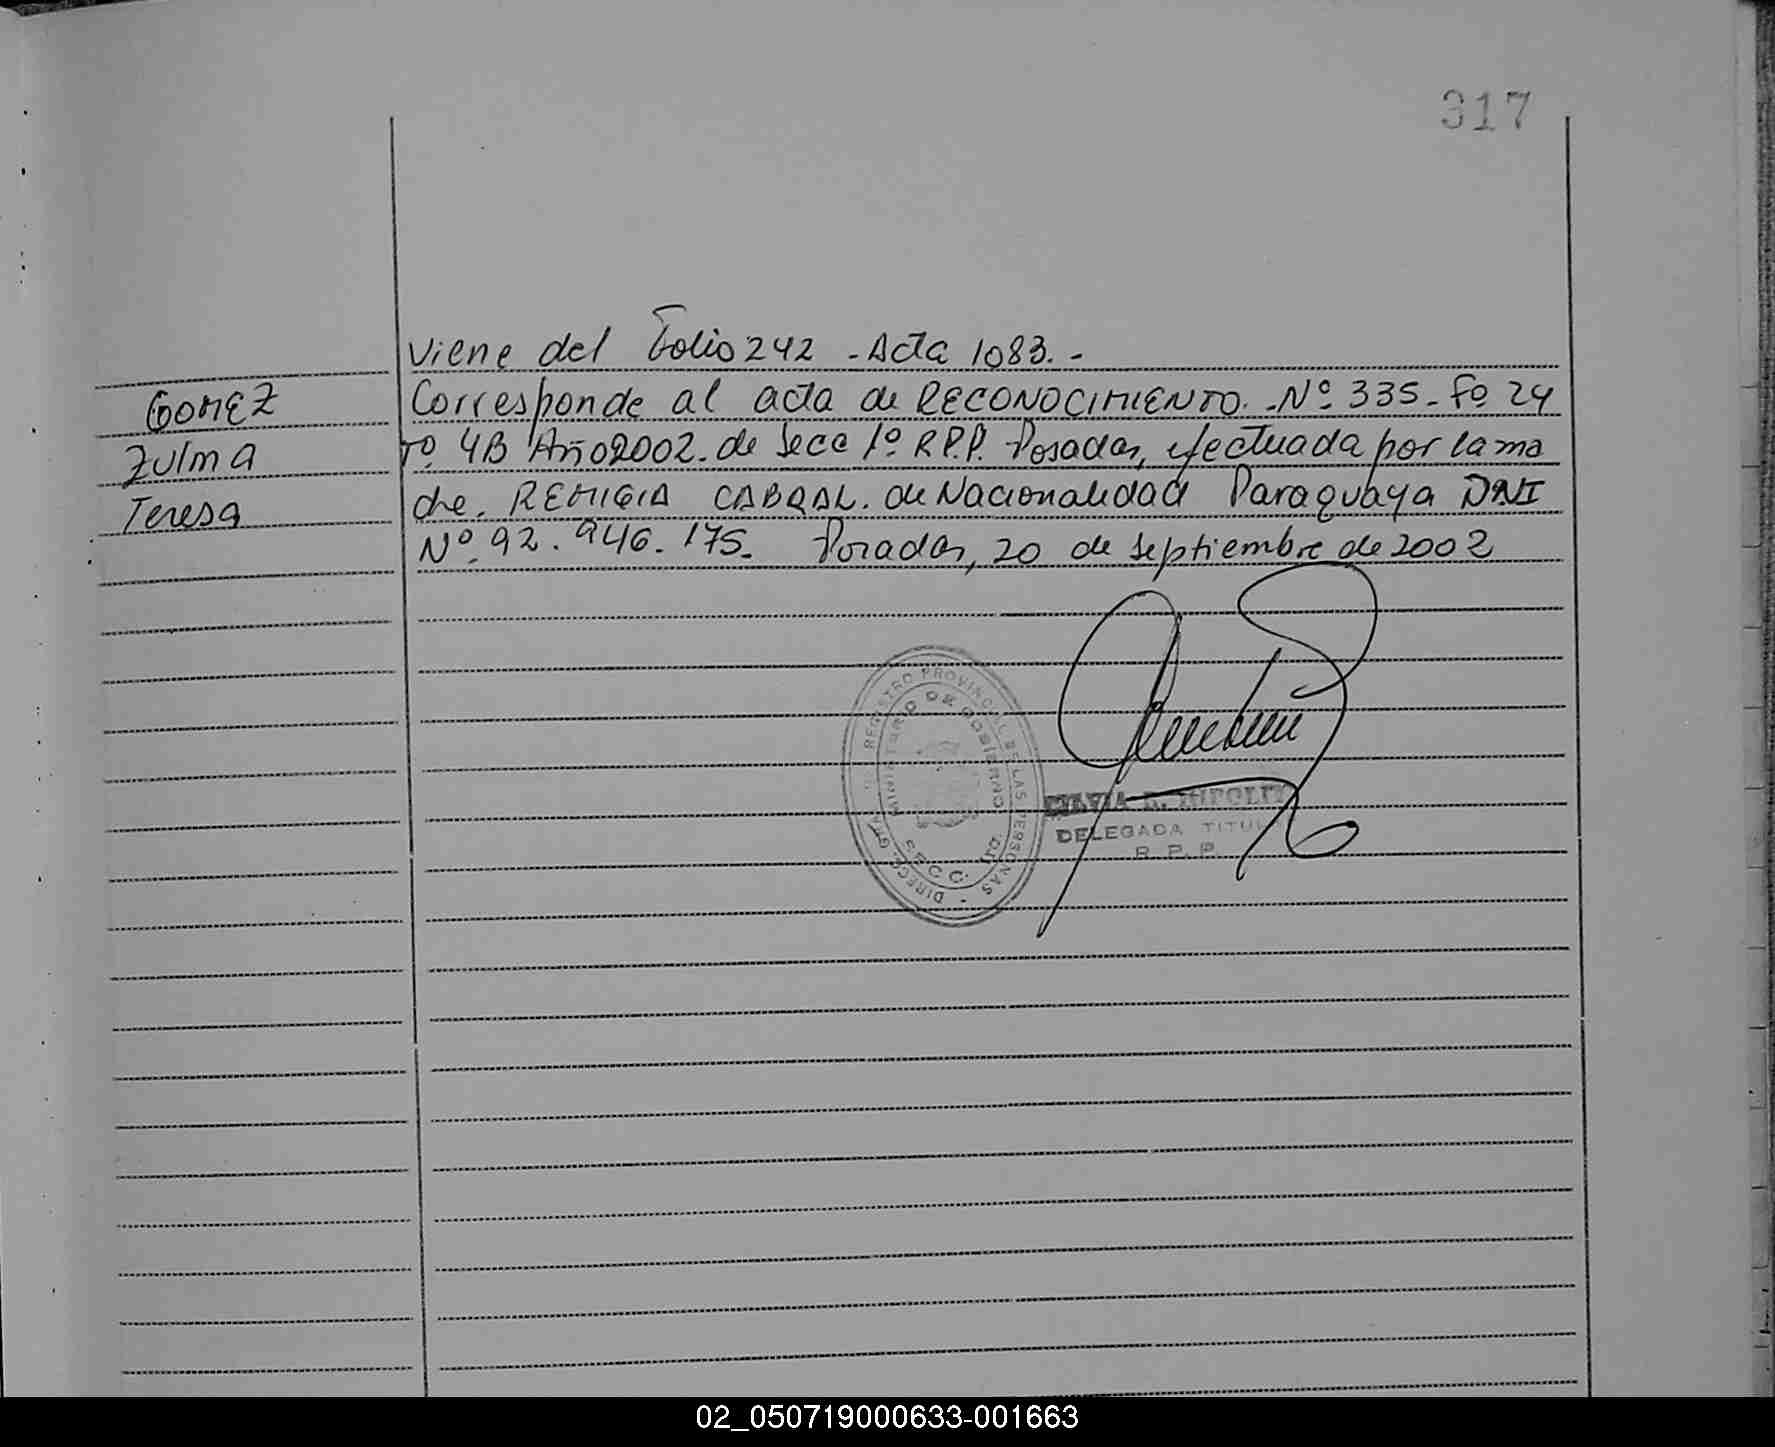 317
Viene del Folio 242 - Acta 1083. -
GOMEZ
Zulma
Teresa
Corresponde al acta de RECONOCIMIENTO. - Nº 335 - Fº 24
Tº 4B Año 2002. de Secc 1º R.P.P. Posadas, efectuada por la ma
dre. REMIGIA CABRAL. de Nacionalidad Paraguaya DNI
Nº. 92.946.175. Posadas, 20 de Septiembre de 2002
REGISTRO PROVINCIAL DE LAS PERSONAS
MINISTERIO DE GOBIERNO
SECC.
DIRECC. GRAL.
SILVIA
DELEGADA TITULAR
R. P. P.
02_050719000633-001663